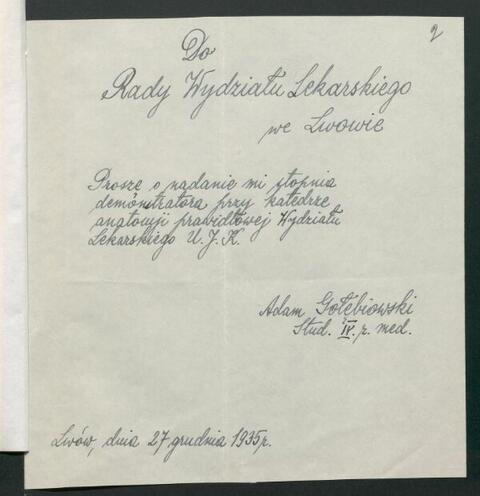 2
Do
Rady Wydziału Lekarskiego
we Lwowie
Proszę o nadanie mi stopnia
demonstratora przy katedrze
anatomji prawidłowej Wydziału
Lekarskiego U. J. K.
Adam Gołębiowski
Stud. IV. r. med.
Lwów, dnia 27 grudnia 1935 r.